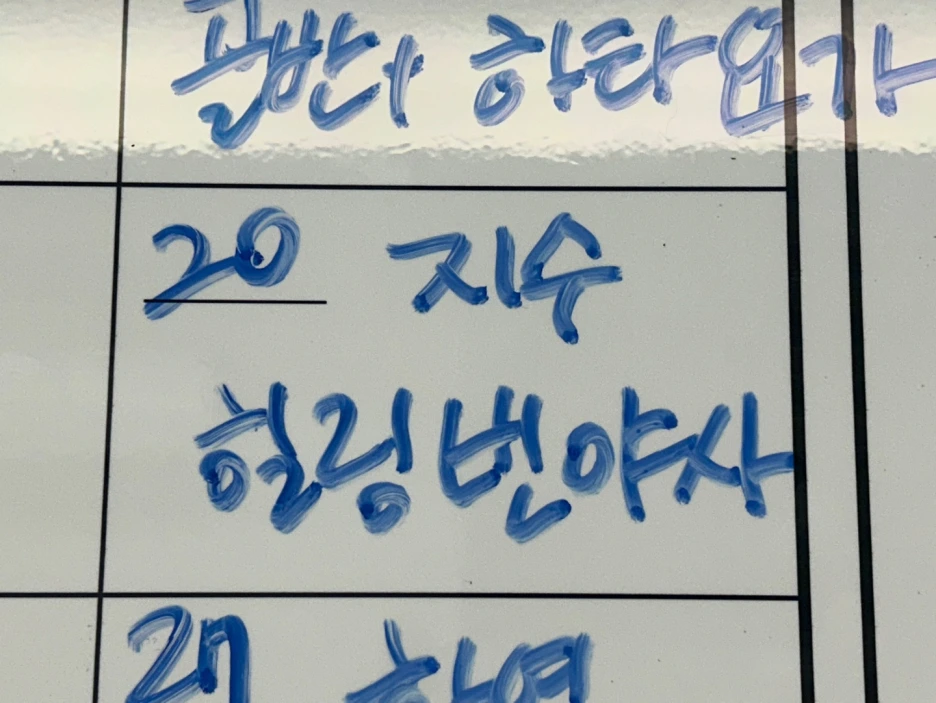 골반 하타요가
20 지수
힐링빈야사
27